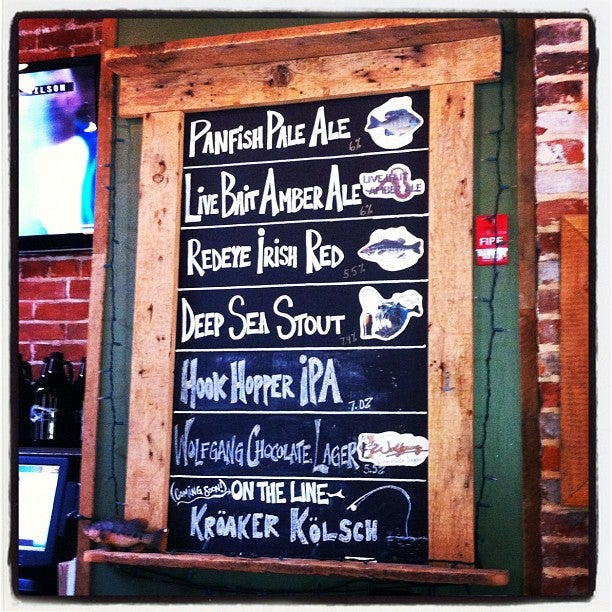 ELSON
PANFISH PALE ALE
6%
LIVE BAIT AMBER ALE
LIVE BAIT
AMBER ALE
6%
REDEYE IRISH RED
5.5%
FIRE
DEEP SEA STOUT
7.4%
HOOK HOPPER IPA
7.0%
WOLFGANG CHOCOLATE LAGER
Wolfgang
5.5%
(COMING SOON!) ON THE LINE
KRÖAKER KÖLSCH